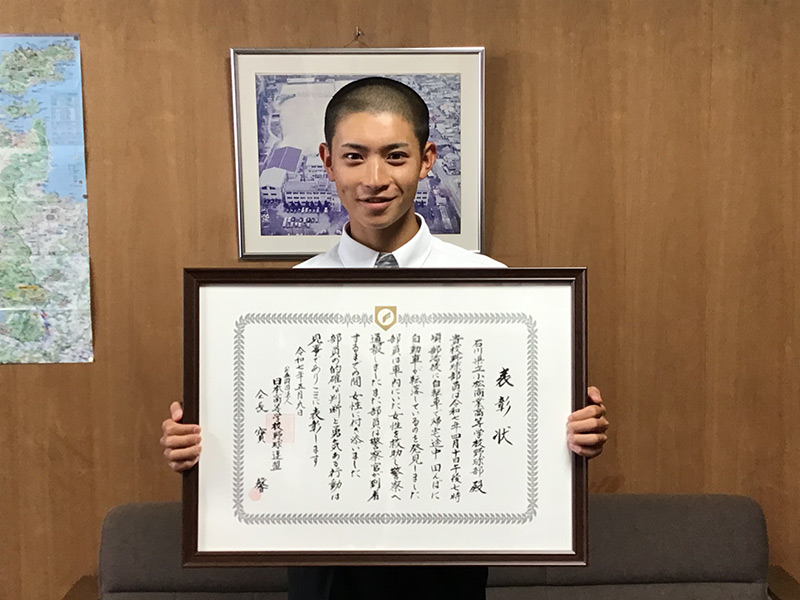 表彰状
石川県立小松商業高等学校野球部 殿
貴校野球部員は令和七年四月十日午後七時
頃部活後に自転車で帰宅途中田んぼに
自動車が転落しているのを発見しました
部員は車内にいた女性を救助し警察へ
通報しましたまた部員は警察官が到着
するまでの間女性に付き添いました
部員の的確な判断と勇気ある行動は
見事でありここに表彰します
令和七年五月九日
公益財団法人
日本高等学校野球連盟
会長 寳 馨